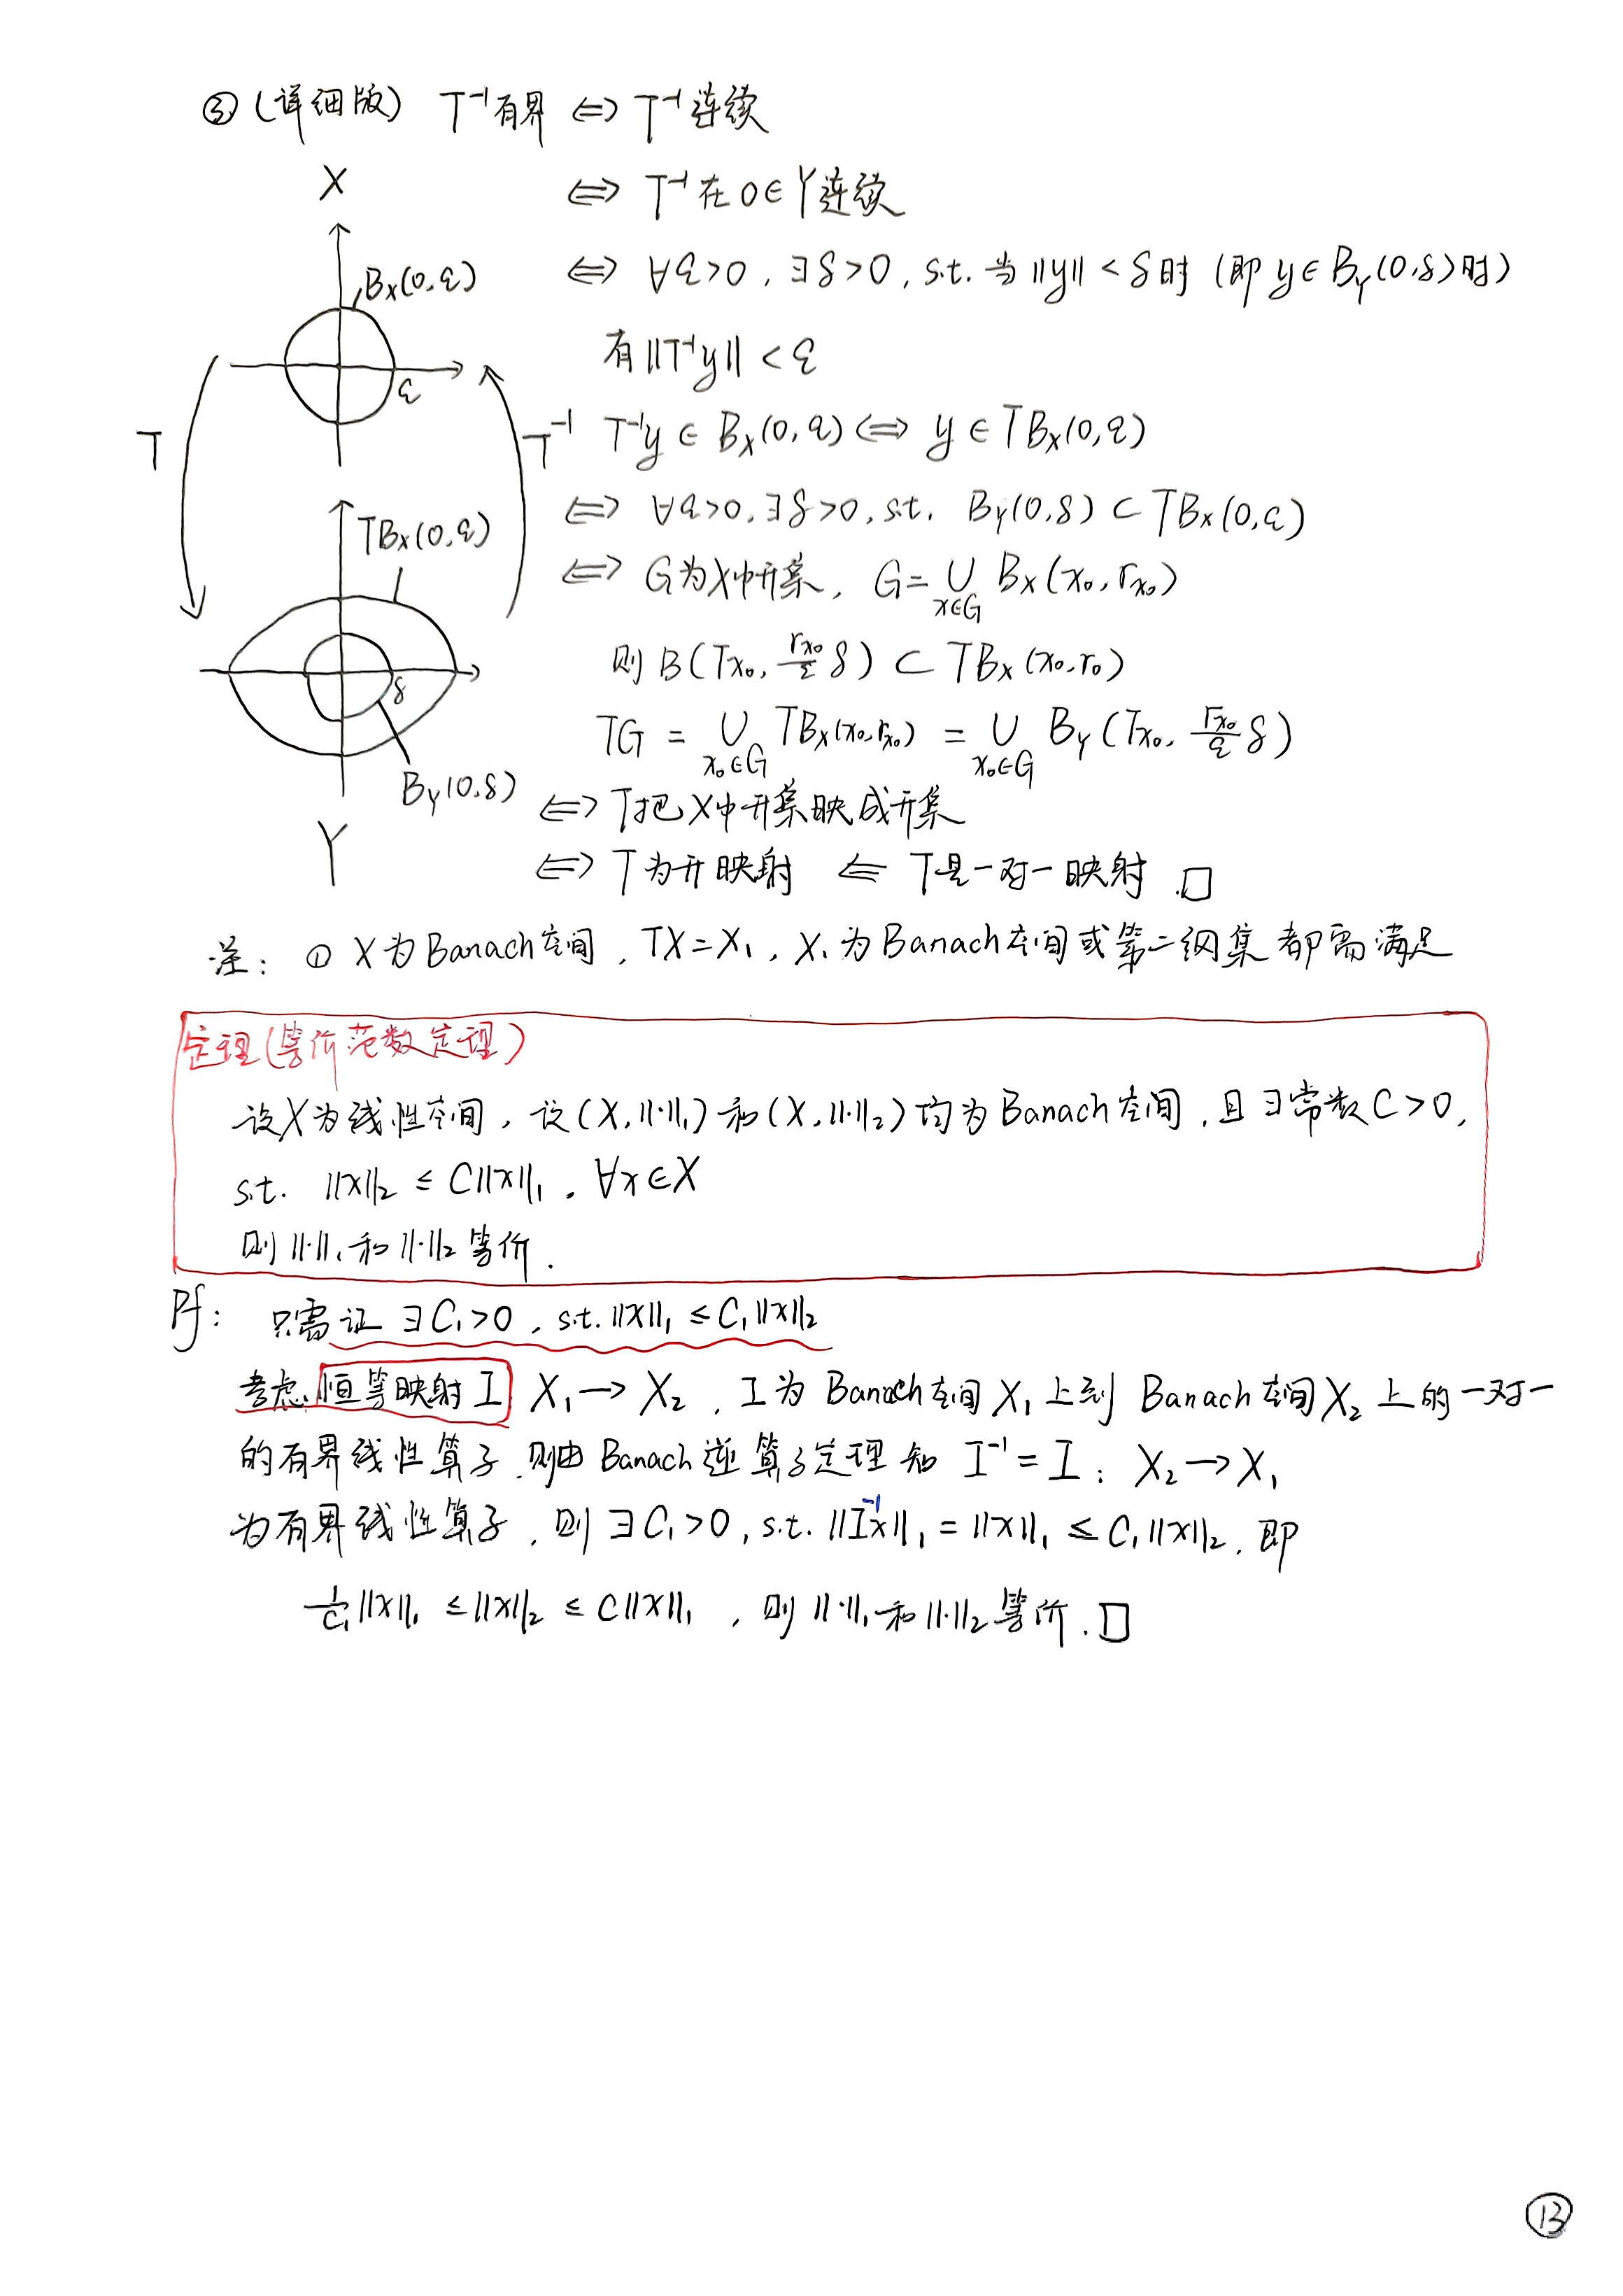 ③ (详细版) T⁻¹有界 ⇔ T⁻¹连续
X
⇔ T⁻¹在0∈Y连续
B_X(0,ε)
⇔ ∀ε>0, ∃δ>0, s.t. 当||y||<δ时 (即y∈B_Y(0,δ)时)
有||T⁻¹y||<ε
ε
T
T⁻¹
T⁻¹y∈B_X(0,ε) ⇔ y∈TB_X(0,ε)
⇔ ∀ε>0, ∃δ>0, s.t. B_Y(0,δ)⊂TB_X(0,ε)
TB_X(0,ε)
⇔ G为X中开集, G=∪_{x∈G} B_X(x₀,r_{x₀})
则B(Tx₀, r_{x₀}/ε δ)⊂TB_X(x₀,r₀)
δ
TG = ∪_{x₀∈G} TB_X(x₀,r_{x₀}) = ∪_{x₀∈G} B_Y(Tx₀, r_{x₀}/ε δ)
B_Y(0,δ)
⇔ T把X中开集映成开集
Y
⇔ T为开映射 ⇐ T是一对一映射. □
注: ① X为Banach空间, TX=X₁, X₁为Banach空间或第二纲集都需满足
定理(等价范数定理)
设X为线性空间, 设(X,||·||₁)和(X,||·||₂)均为Banach空间, 且∃常数C>0,
s.t. ||x||₂ ≤ C||x||₁, ∀x∈X
则||·||₁和||·||₂等价.
Pf: 只需证 ∃C₁>0, s.t. ||x||₁ ≤ C₁||x||₂
考虑恒等映射I X₁→X₂, I为Banach空间X₁上到Banach空间X₂上的一对一
的有界线性算子. 则由Banach逆算子定理知 I⁻¹=I: X₂→X₁
为有界线性算子, 则∃C₁>0, s.t. ||I⁻¹x||₁=||x||₁≤C₁||x||₂. 即
1/C₁||x||₁ ≤ ||x||₂ ≤ C||x||₁, 则||·||₁和||·||₂等价. □
⑬